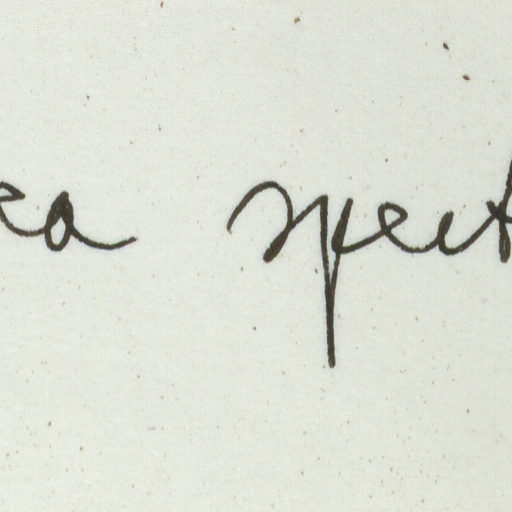 ea spect